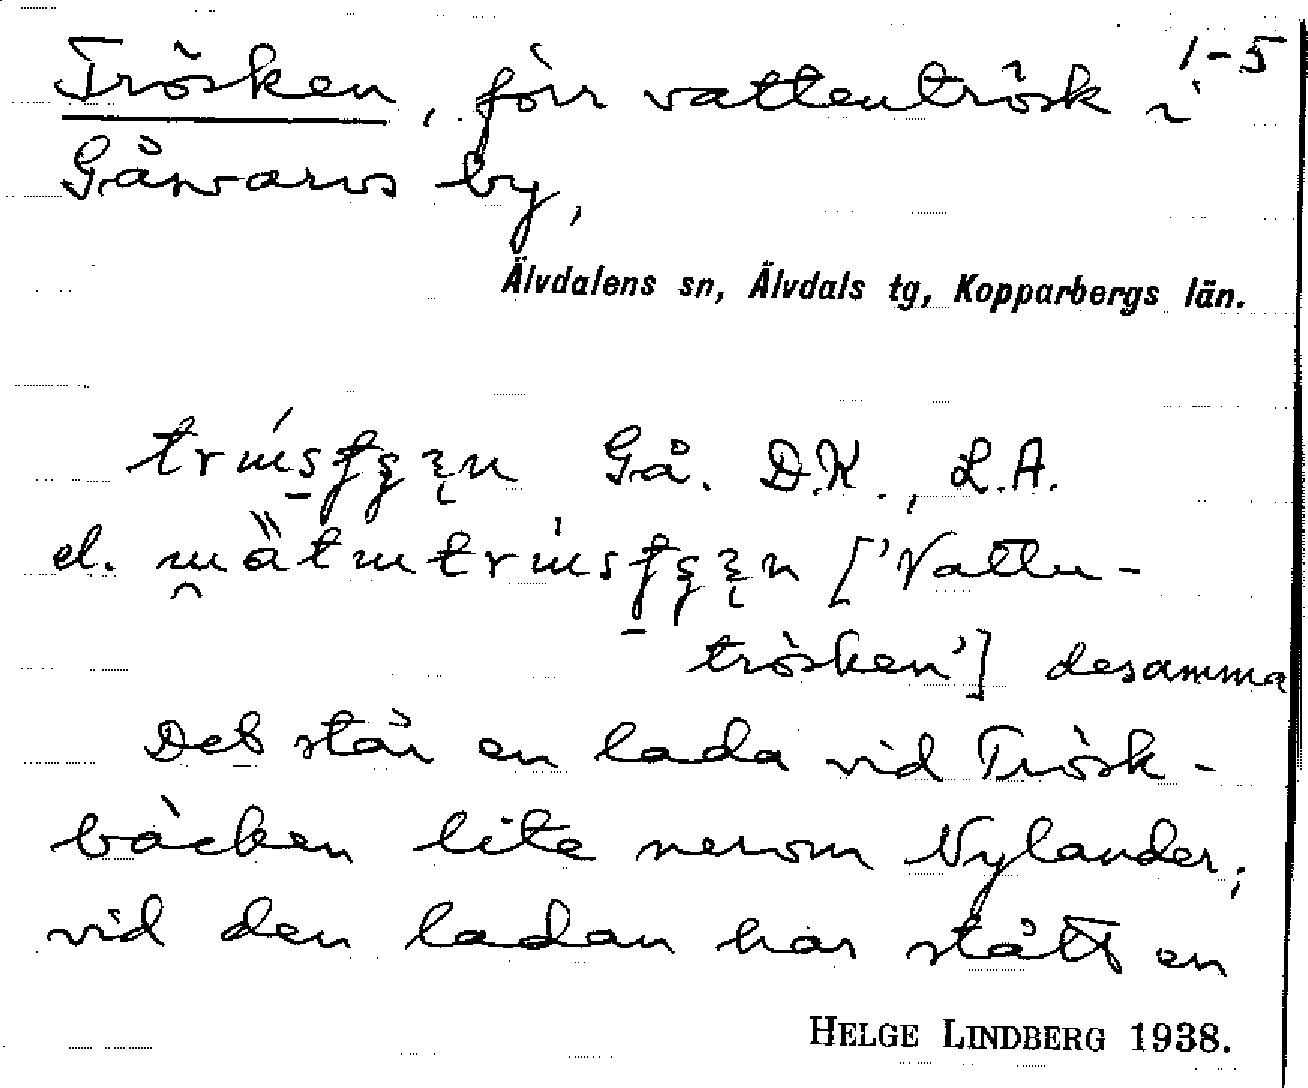 1-5
Trösken, förr vattentrösk i
Gåsvarvs by,
Älvdalens sn, Älvdals tg, Kopparbergs län.
Gå. D.K., L.A.
el. ['Vattu-
trösken'] desamma
Det står en lada vid Trösk-
bäcken lite nerom Nylander;
vid den ladan har stått en
HELGE LINDBERG 1938.